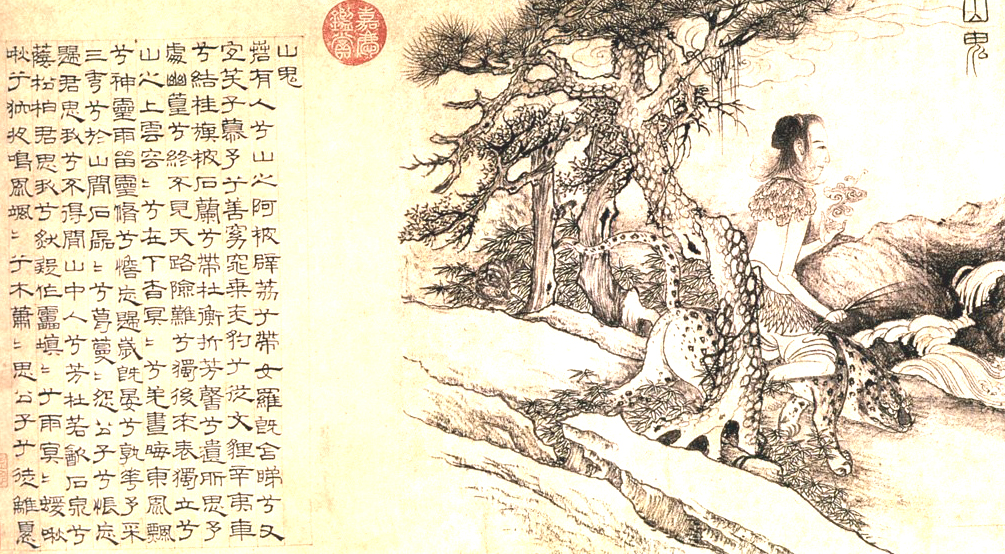 山鬼
嘉慶鑑賞
山鬼
若有人兮山之阿被辟荔兮帶女羅既含睇兮又
宜笑子慕予兮善窈窕乘赤豹兮從文貍辛夷車
兮結桂旗被石蘭兮帶杜衡折芳馨兮遺所思予
處幽篁兮終不見天路險難兮獨後來表獨立兮
山之上雲容〻兮在下杳冥〻兮羌晝晦東風飄
兮神靈雨留靈脩兮憺忘歸歲既晏兮孰華予采
三秀兮於山間石磊〻兮葛蔓〻怨公子兮悵忘
歸君思我兮不得閒山中人兮芳杜若飲石泉兮
蔭松柏君思我兮然疑作靁填〻兮雨冥〻蝯啾
啾兮狖夜鳴風颯〻兮木蕭〻思公子兮徒離憂